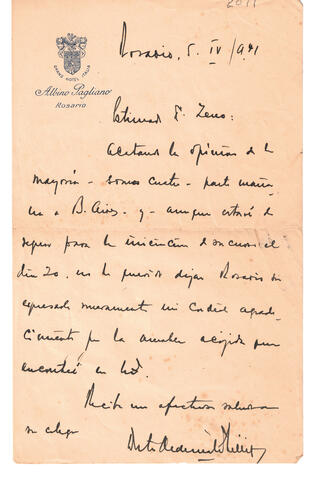 2011
GRAND HOTEL ITALIA
Albino Pagliano
Rosario
Rosario, 5. IV / 941
Estimado Dr. Zeno:
Acatando la opinión de la
mayoría - somos cuatro - parto maña-
na a B. Aires - y - aunque estaré de
regreso para la iniciación de su curso el
día 20, no he querido dejar Rosario sin
expresarle nuevamente mi cordial agrade-
cimiento por la amable acogida que
encontré en Ud.
Reciba un afectuoso saludo de
su colega